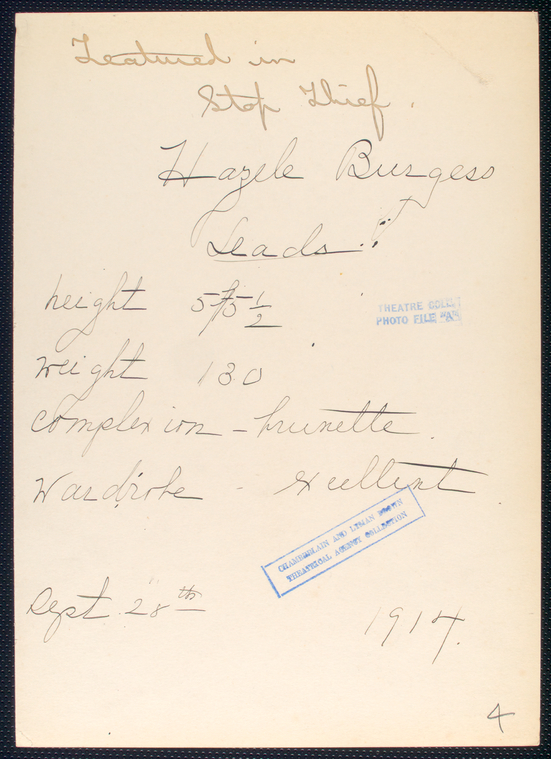 Featured in
Stop Thief.
Hazele Burgess
Leads.
height 5 ft 5 1/2
THEATRE COLL.
PHOTO FILE "A"
weight 130
complexion - brunette.
Wardrobe - Excellent
CHAMBERLAIN AND LYMAN BROWN
THEATRICAL AGENCY COLLECTION
Sept. 28th 1914.
4